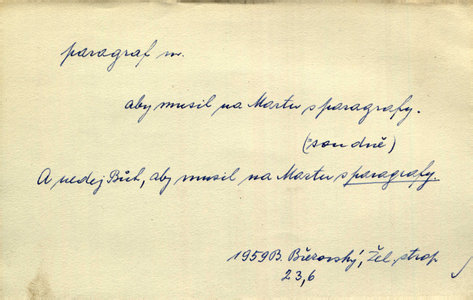 paragraf m.
aby musil na Martu s paragrafy.
(soudně)
A nedej Bůh, aby musil na Martu s paragrafy.
1959 B. Březovský, Žel. strop
23,6